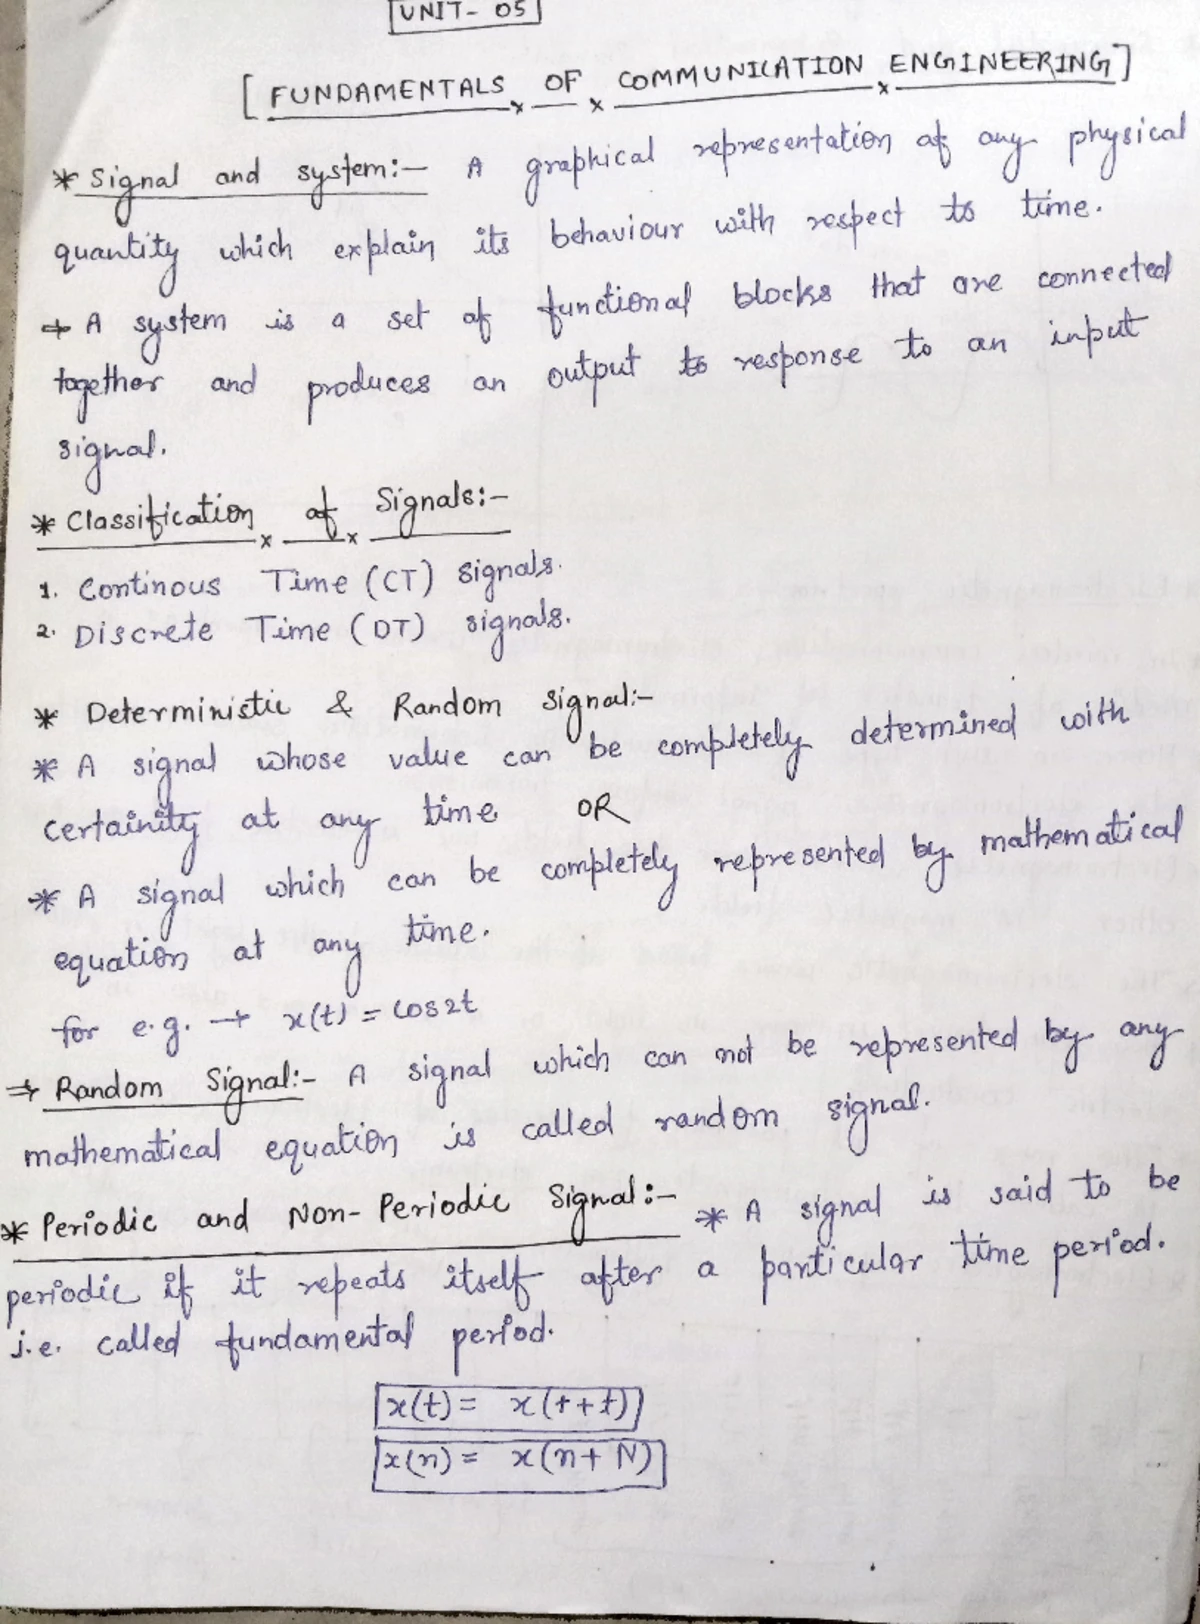 UNIT- 05
[ FUNDAMENTALS OF COMMUNICATION ENGINEERING ]
* Signal and system:- A graphical representation of any physical
quantity which explain its behaviour with respect to time.
→ A system is a set of functional blocks that are connected
together and produces an output to response to an input
signal.
* Classification of Signals:-
1. Continous Time (CT) signals.
2. Discrete Time (DT) signals.
* Deterministic & Random signal:-
* A signal whose value can be completely determined with
certainity at any time OR
* A signal which can be completely represented by mathematical
equation at any time.
for e.g. → x(t) = cos2t
⇒ Random Signal:- A signal which can not be represented by any
mathematical equation is called random signal.
* Periodic and Non-Periodic Signal:- * A signal is said to be
periodic if it repeats itself after a particular time period.
i.e. called fundamental period.
x(t) = x(t+t)
x(n) = x(n+N)